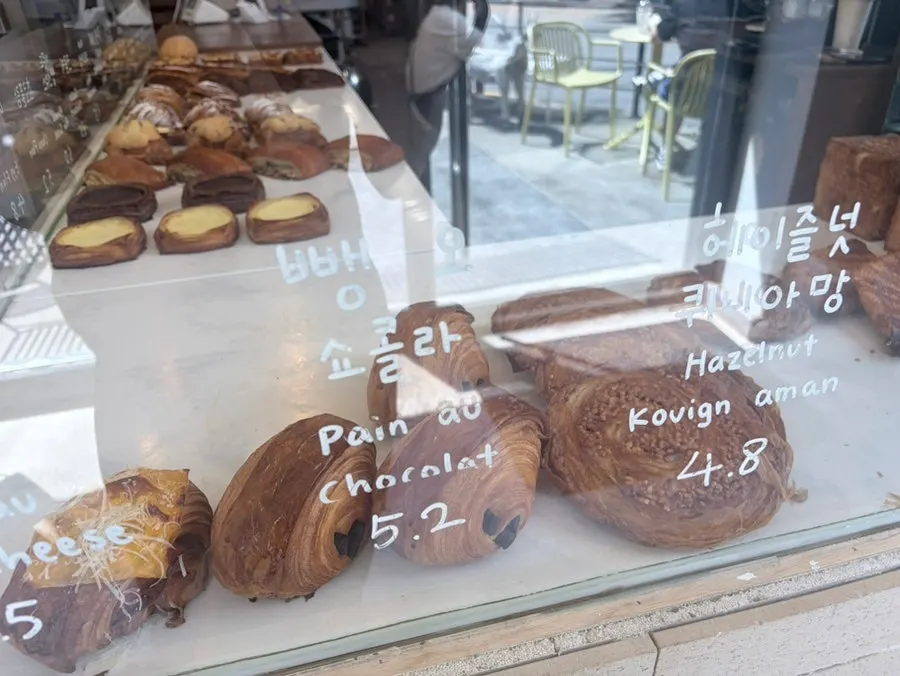 뺑 오
쇼콜라
Pain au
chocolat
5.2
헤이즐넛
퀴니아망
Hazelnut
Kouign aman
4.8
au
cheese
.5